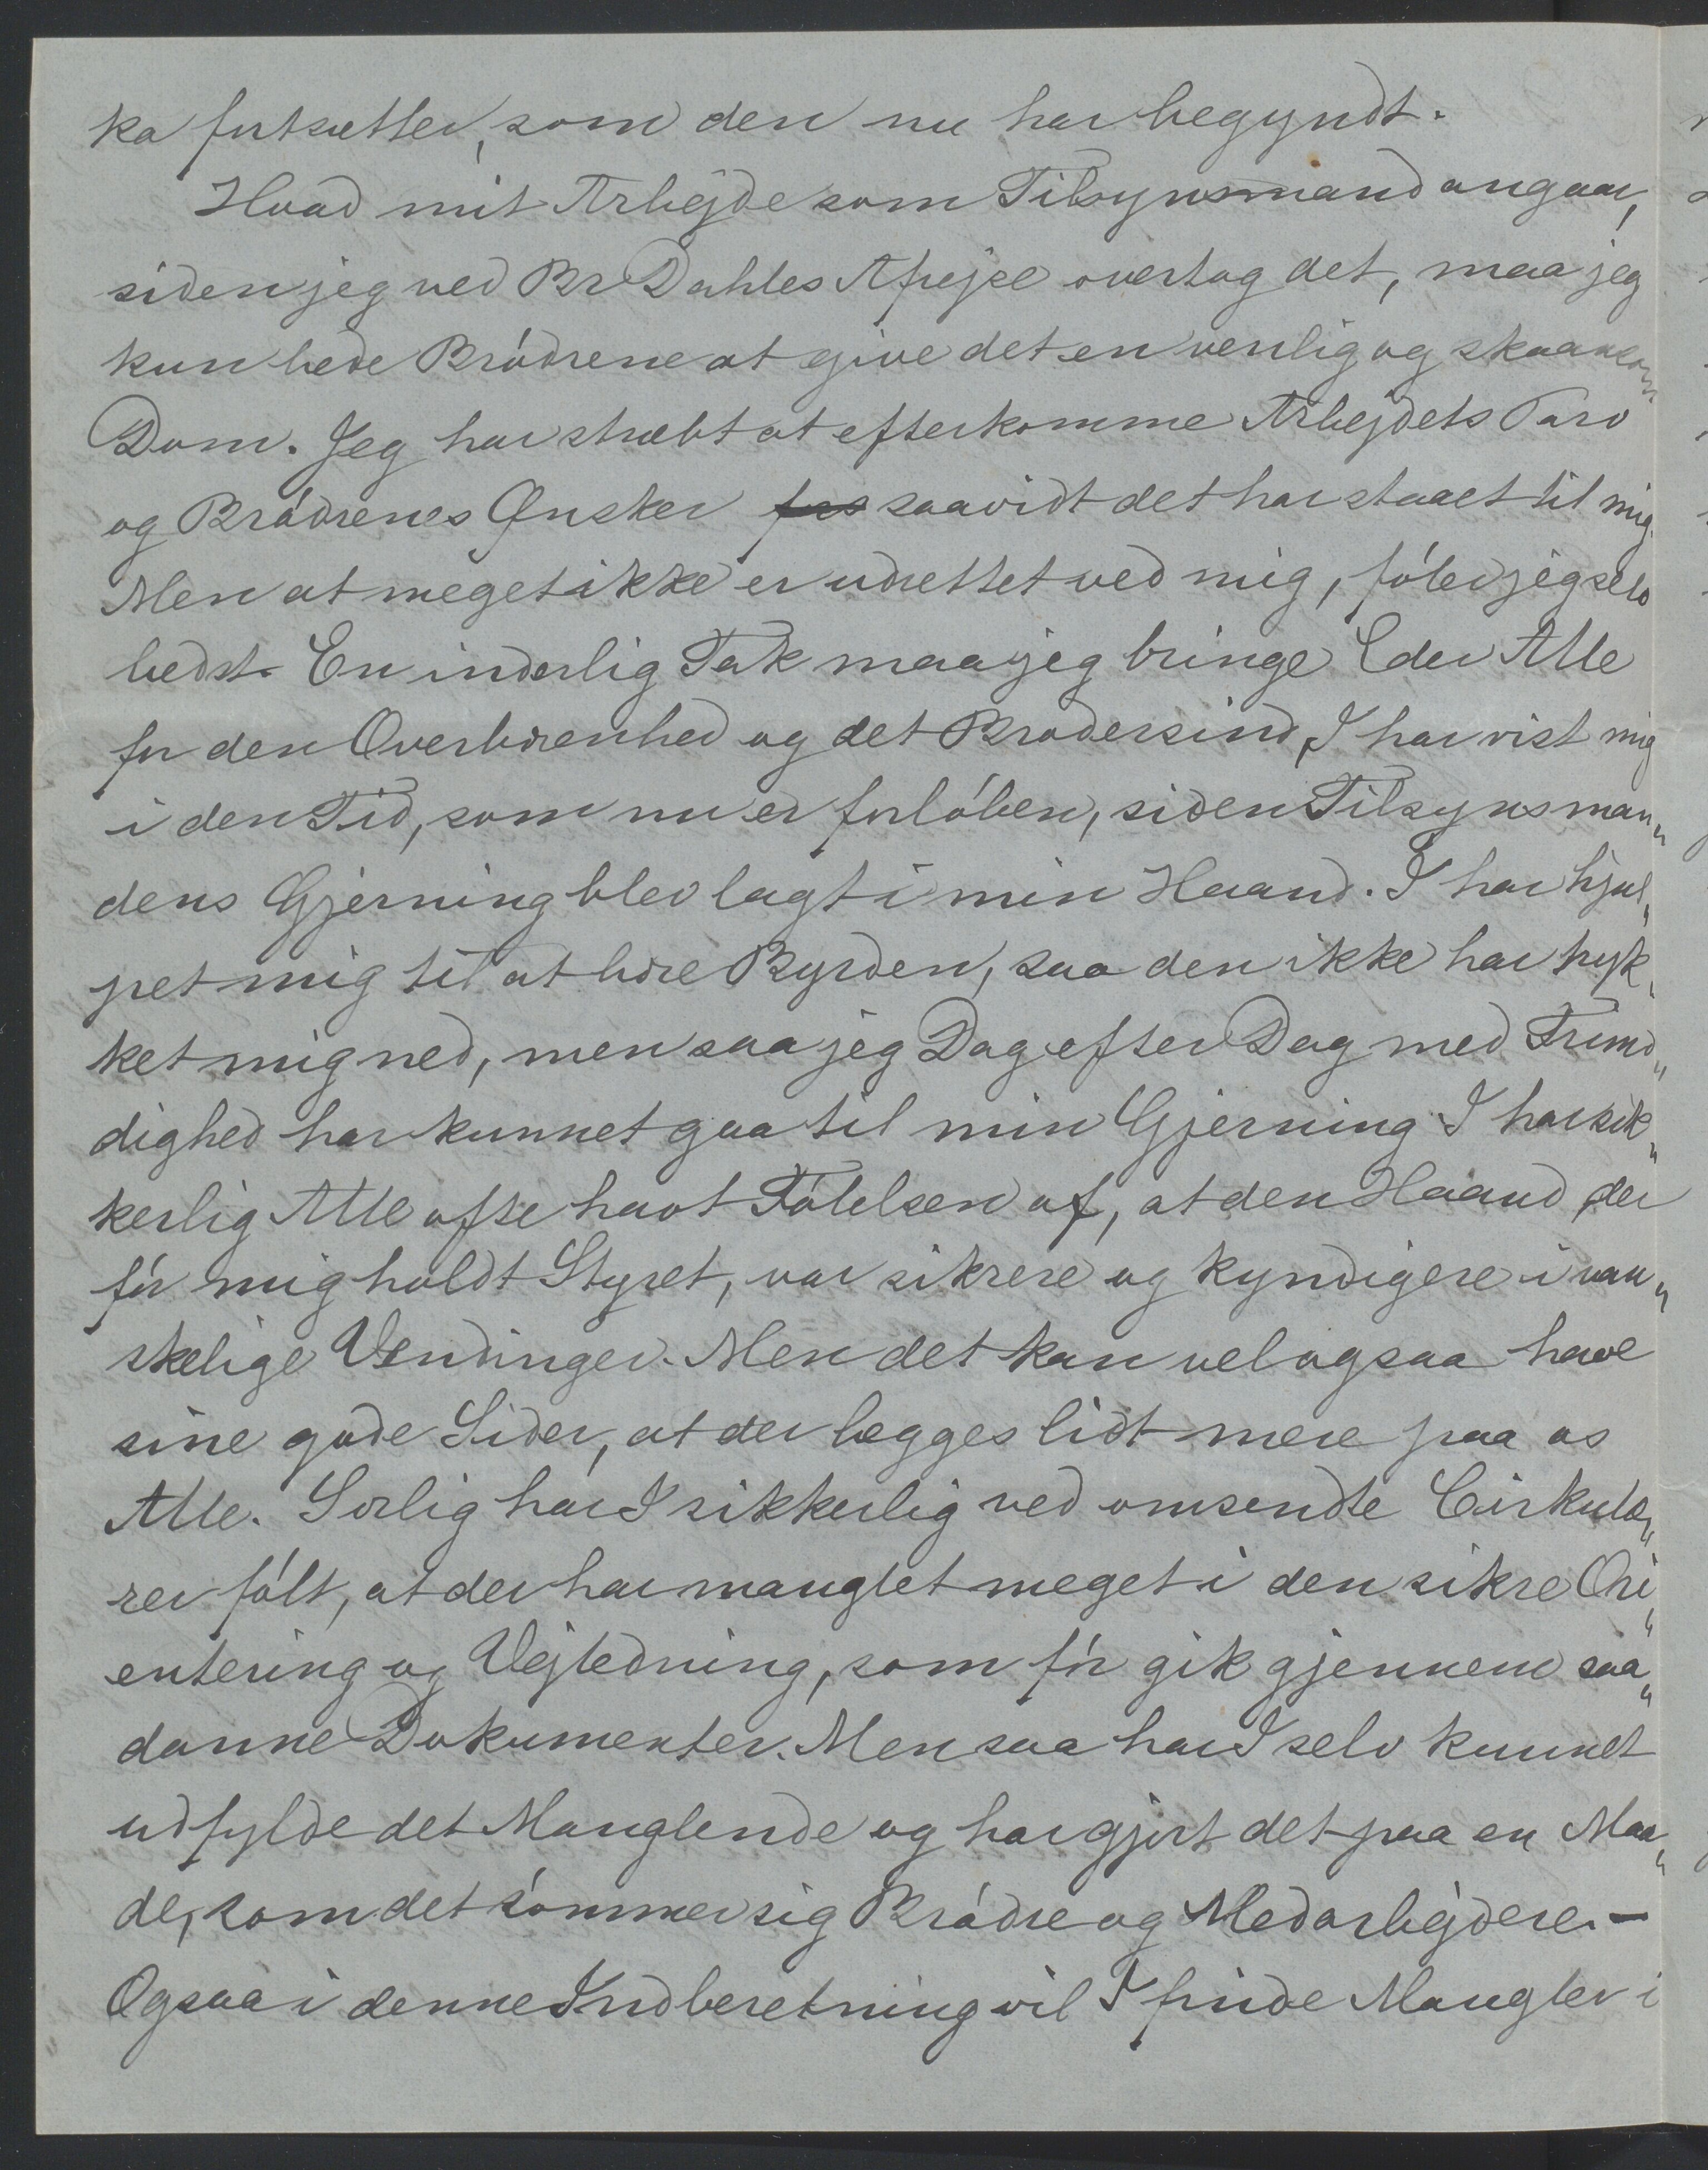 ka fortsætter, som den nu har begyndt.
Hvad mit Arbejde som Tilsynsmand angaar,
siden jeg ved Br Dahles Afrejse overtog det, maa jeg
kun bede Brødrene at give det en venlig og skaansom
Dom. Jeg har stræbt at efterkomme Arbejdets Tarv
og Brødrenes Ønsker saavidt det har staaet til mig.
Men at meget ikke er udrettet ved mig, føler jeg selv
bedst. En inderlig Tak maa jeg bringe Eder Alle
for den Overbærenhed og det Brodersind, I har vist mig
i den Tid, som nu er forløben, siden Tilsynsman„
dens Gjerning blev lagt i min Haand. I har hjul„
pet mig til at bære Byrden, saa den ikke har tryk„
ket mig ned, men saa jeg Dag efter Dag med Frimo„
dighed har kunnet gaa til min Gjerning I har sik„
kerlig Alle ofte havt Følelsen af, at den Haand, der
før mig holdt Styret, var sikrere og kyndigere i van„
skelige Vendinger. Men det kan vel ogsaa have
sine gode Sider, at der lægges lidt mere paa os
Alle. Særlig har I sikkerlig ved omsendte Cirkulæ„
rer følt, at der har manglet meget i den sikre Ori„
entering og Vejledning, som før gik gjennem saa„
danne Dokumenter. Men saa har I selv kunnet
udfylde det Manglende og har gjort det paa en Maa„
de, som det sømmer sig Brødre og Medarbejdere. –
Ogsaa i denne Indberetning vil I finde Mangler i